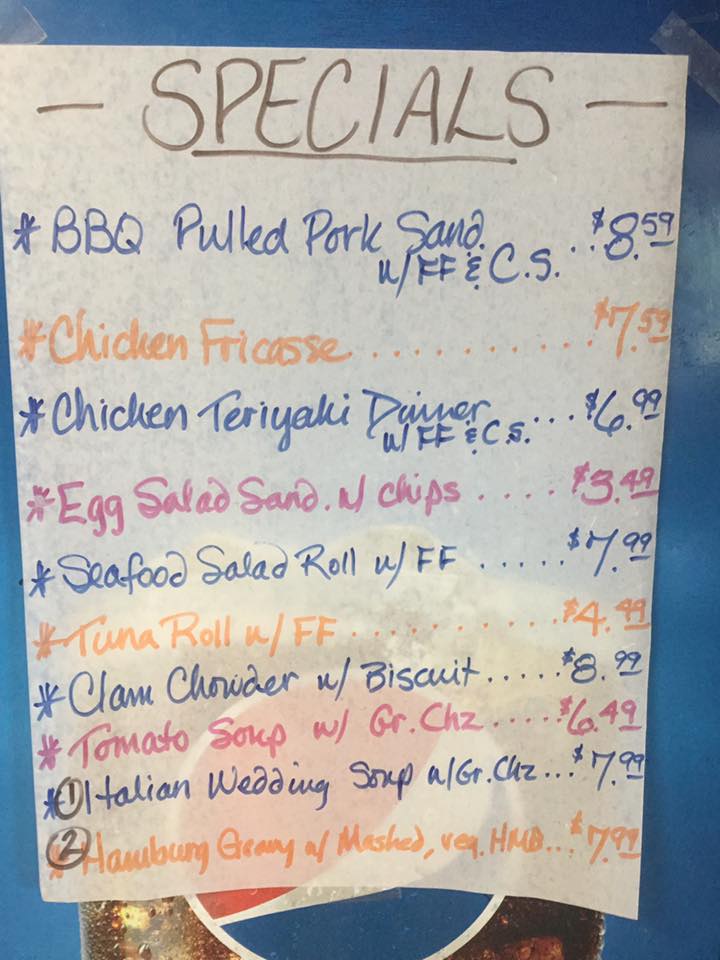 - SPECIALS -
* BBQ Pulled Pork Sand. ...$8.59
w/ FF & C.S.
* Chicken Fricasse...........$7.59
* Chicken Teriyaki Dinner ...$6.99
w/ FF & C.S.
* Egg Salad Sand. w/ chips ....$3.49
* Seafood Salad Roll w/ FF .....$7.99
* Tuna Roll w/ FF ..........$4.49
* Clam Chowder w/ Biscuit.....$8.99
* Tomato Soup w/ Gr.Chz.....$6.49
* ① Italian Wedding Soup w/Gr.Chz...$7.99
* ② Hamburg Gravy w/ Mashed, veg. HMB...$7.99